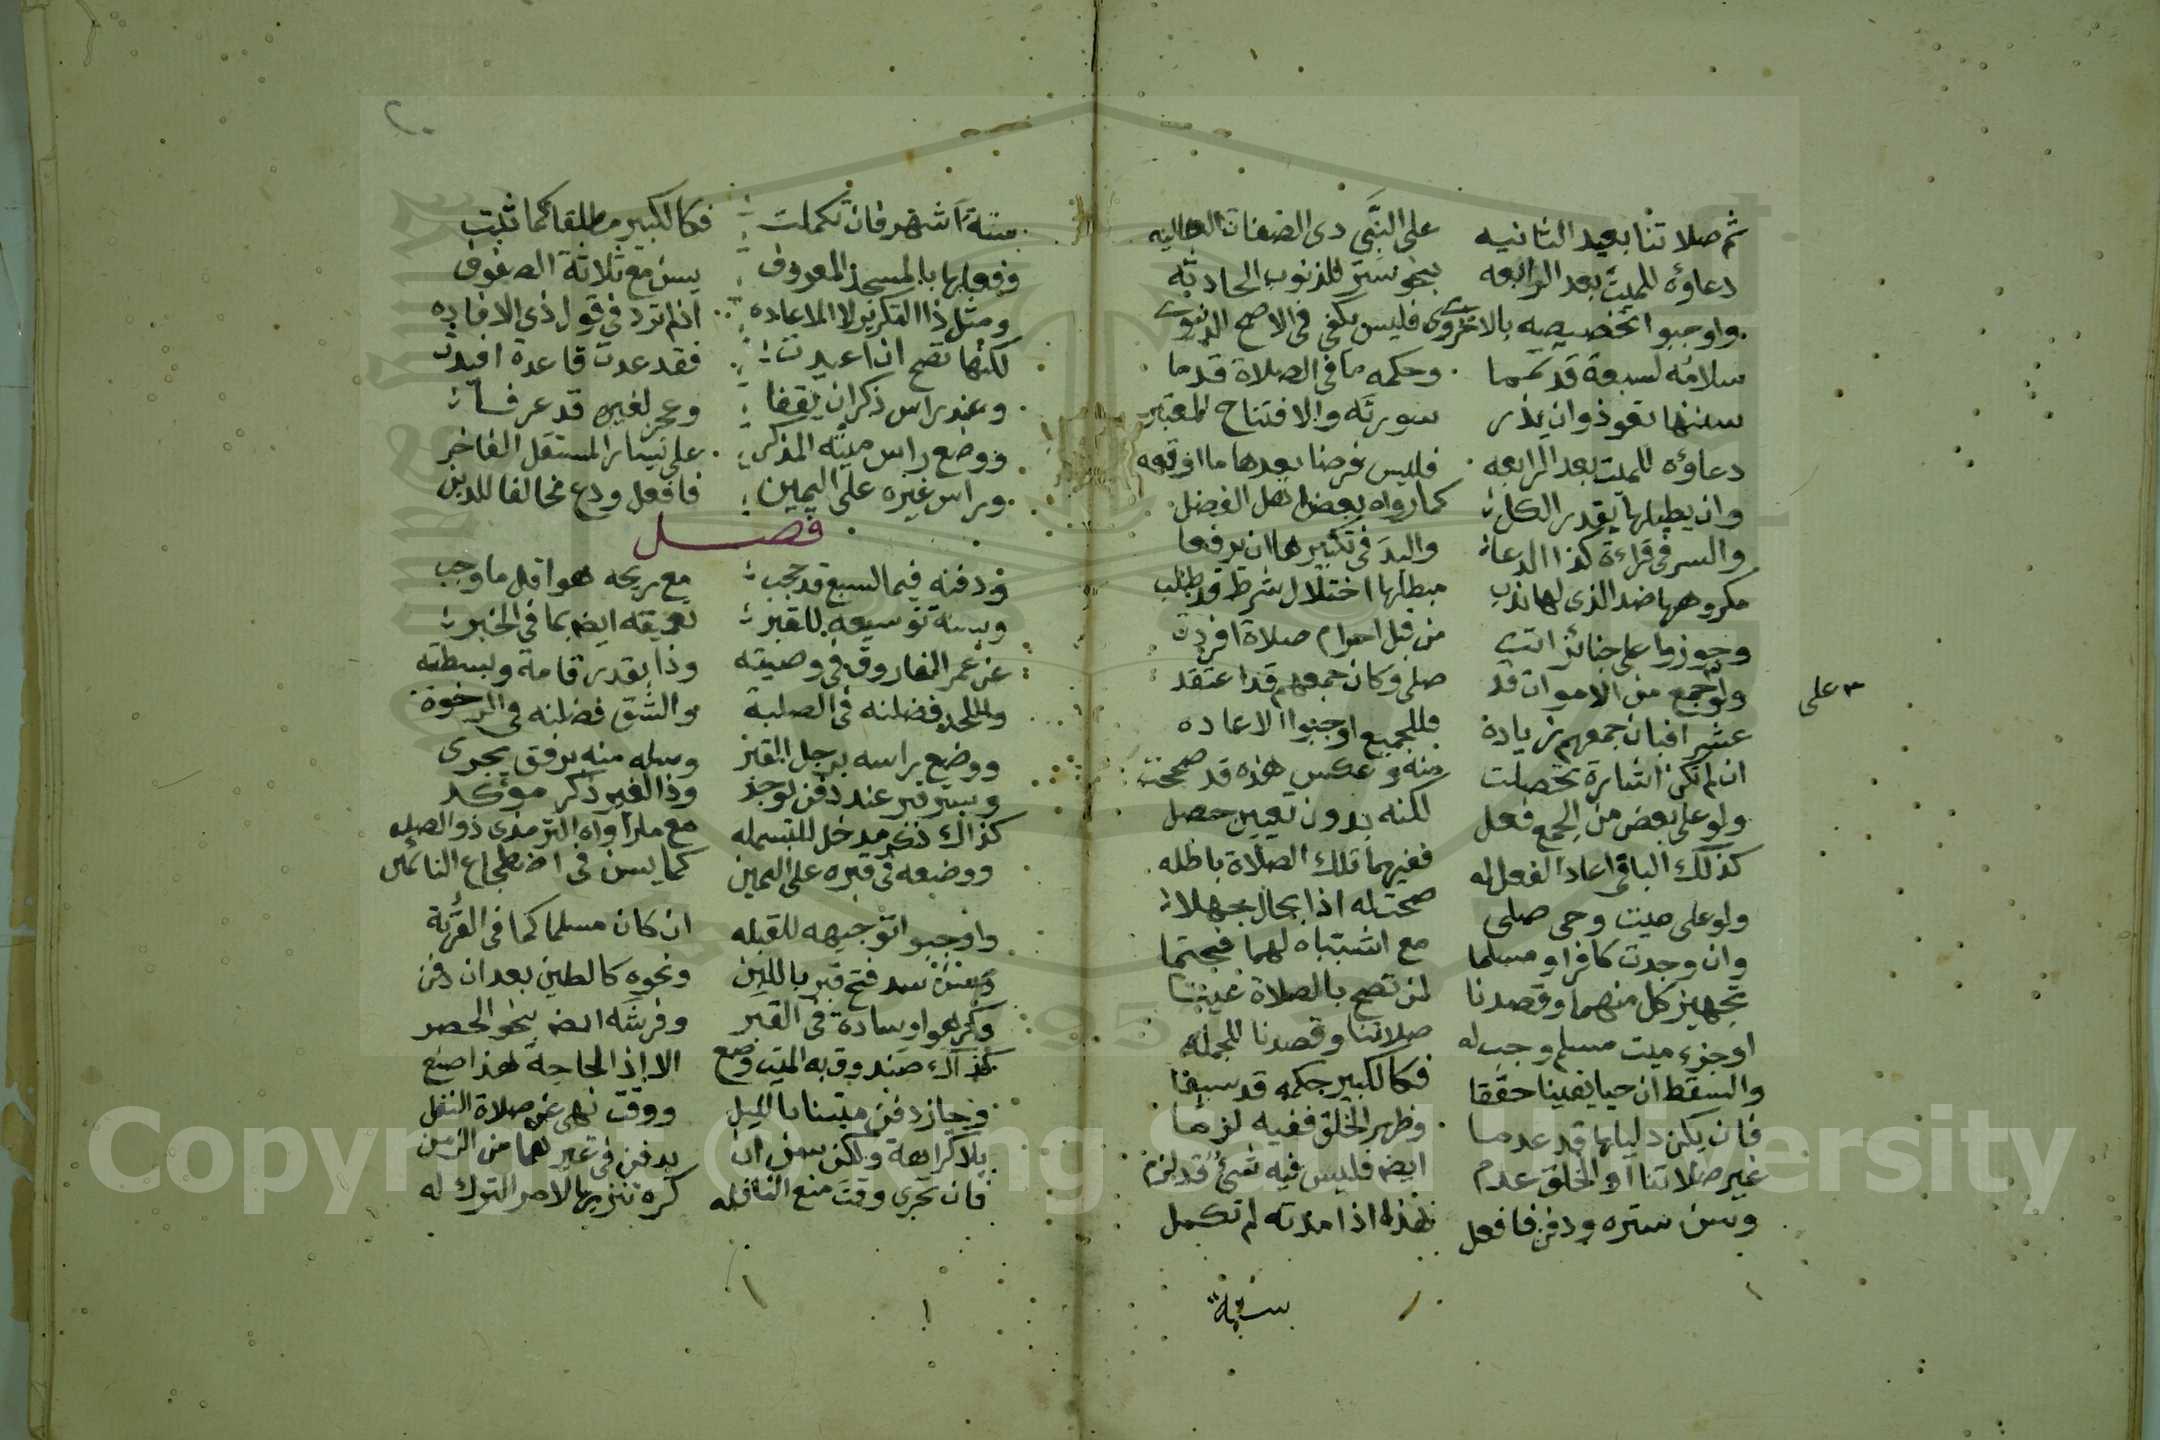 ثم صلاتنا بعيد الثانيه على النبي ذي الصفات العاليه
دعاؤه للميت بعد الرابعه بنحو ستر للذنوب الحادثه
واوجبوا تخصيصه بالاخروي فليس يكفي في الاصح الدنيوي
سلامه لسبعة قد تمما وحكمه ما في الصلاة قدما
سننها تعوذ وان يذر سورته والافتتاح المعتبر
دعاؤه للميت بعد الرابعه فليس فرضا بعدها ما اوقعه
وان يطيلها بقدر الكل كما رواه بعض اهل الفضل
والسر في قراءة كذا الدعا واليد في تكبيرها ان يرفعا
مكروهها ضد الذي لها ندب مبطلها اختلال شرط قد طلب
وجوزوا على جنائز اتت من قبل احرام صلاة افردت
ولو جمع من الاموات قد صلى وكان جمعهم قد اعتقد
على
عشرا فبان جمعهم زيادة فللجميع اوجبوا الاعاده
ان لم تكن اشارة تحصلت منه وعكس هذه قد صححت
ولو على بعض من الجمع فعل لكنه بدون تعيين حصل
كذلك الباقي اعاد الفعل له ففيهما تلك الصلاة باطله
ولو على ميت وحي صلى صحت له اذا بحال جهلا
وان وجدت كافرا ومسلما مع اشتباه لهما فحتما
تجهيز كل منهما وقصدنا لمن تصح بالصلاة عينا
او جزء ميت مسلم وجب له صلاتنا وقصدنا للجمله
والسقط ان حيا يقينا حققا فكالكبير حكمه قد سبقا
فان يكن دليلها قد عدما وظهر الخلق ففيه لزما
غير صلاتنا او الخلق عدم ايضا فليس فيه شيء قد لزم
وسن ستره ودفن فافعل هذا اذا مدته لم تكمل
ستة
٢٠
ستة اشهر فان تكملت فكالكبير مطلقا كما ثبت
وفعلها بالمسجد المعروف يسن مع ثلاثة الصفوف
ومثل ذا التكرير لا الاعاده اذ لم ترد في قول ذي الافاده
لكنها تصح ان اعيدت فقد عدت قاعدة افيدت
وعند راس ذكر ان يقفا وعجز لغيره قد عرفا
ووضع راس ميته المذكر على يسار المستقل الفاخر
وراس غيره على اليمين فافعل ودع مخالفا للدين
فصل
ودفنه فيما لسبع قد حجب مع ريحه هو اقل ما وجب
وسنة توسيعه للقبر تعميقه ايضا بما في الخبر
عن عمر الفاروق في وصيته وذا بقدر قامة وبسطته
واللحد فضلنه في الصلبة والشق فضلنه في الرخوة
ووضع راسه برجل القبر وسله منه برفق يجري
وستر قبر عند دفن لو جذ وذا لغير ذكر مؤكد
كذاك ذكر مدخل للبسمله مع ما رواه الترمذي ذو الصله
ووضعه في قبره على اليمين كما يسن في اضطجاع النائمين
واوجبوا توجيهه للقبله ان كان مسلما كما في القربة
وسن سد فتح قبر باللبن ونحوه كالطين بعد ان دفن
وكرهوا وسادة في القبر وفرشه ايضا بنحو الحصر
كذاك صندوق به الميت وضع الا اذا لحاجة هذا صنع
وجاز دفن ميتنا بالليل ووقت نهى عن صلاة النفل
بلا كراهة ولكن سن ان يدفن في غيرهما من الزمن
فان تحرى وقت منع النافله كره تنزيها لامر الترك له